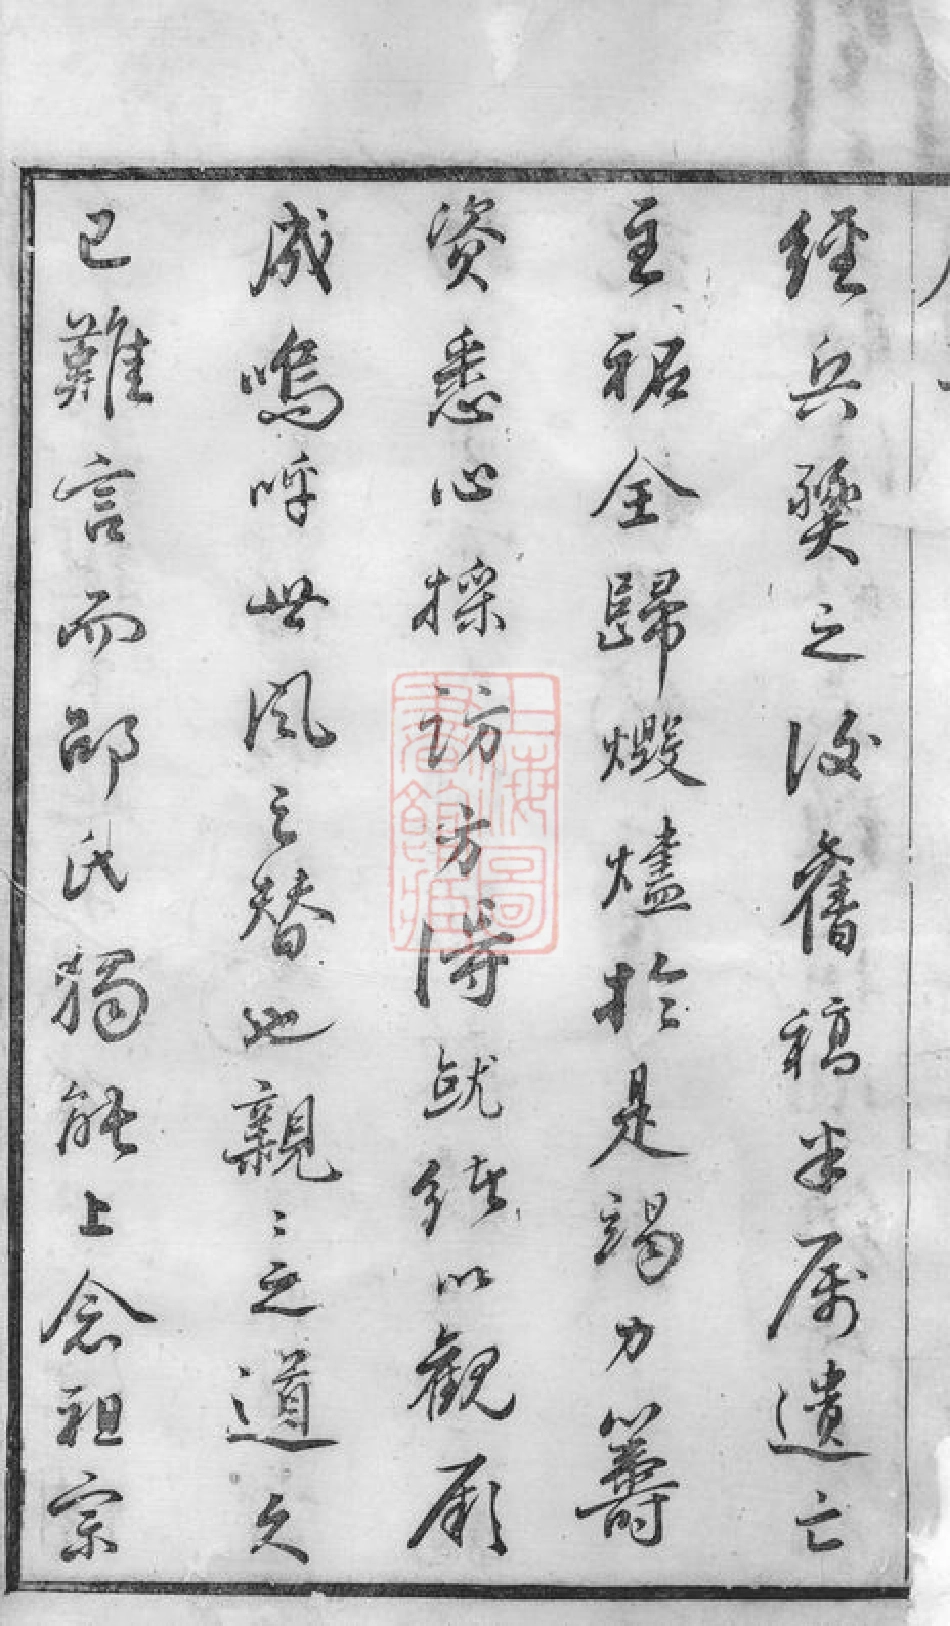 經兵燹之後舊稿半属遺亡
主祏全歸燬燼於是竭力籌
資悉心採訪方得就緒以觀厥
成嗚呼世风之替也親〻之道久
已難言而邵氏獨能上念祖宗
上海圖書館藏